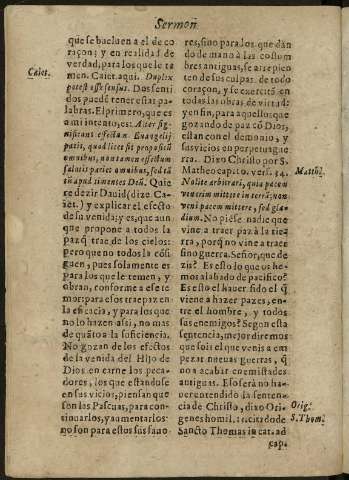 Sermon
que se bueluen a el de co
raçon; y en realidad de
verdad, para los que le te
men. Caiet. aqui. Duplex
potest esse sensus. Dos senti
dos puedē tener estas pa-
labras. El primero, que es
a mi intento, es. Alter sig
nificans effectum Euangelij
pacis, quod licet sit propositū
omnibus, non tamen effectum
salutis pacies omnibus, sed tā
tū apud timentes Deū. Quie
re dezir Dauid (dize Ca-
iet.) y explicar el efeto
de su venida; y es, que aun
que propone a todos la
paz q̄ trae de los cielos:
pero que no todos la cōsi
guen, pues solamente es
para los que le temen, y
obran, conforme a esse te
mor: para esos trae paz en
la eficacia, y para los que
no lo hazen assi, no mas
de quāto a la suficiencia.
No gozan de los efetos
de la venida del Hijo de
Dios en carne los peca-
dores, los que estandose
en sus vicios, piensan que
son las Pascuas, para con-
tinuarlos, y aumentarlos:
no son para estos sus fauo
Caiet.
res, sino para los que dan
do de mano à las costum
bres antiguas, se arrepien
ten de sus culpas de todo
coraçon, y se exercitā en
todas las obras de virtud:
y en fin, para aquellos que
gozando de paz cō Dios,
estan con el demonio, y
sus vicios en perpetua gue
rra. Dixo Christo por S.
Matheo capito. vers. 34.
Nolite arbitrari, quia pacem
venerim mittere in terrā; non
veni pacem mittere, sed gla
dium. No piēse nadie que
vine a traer paz à la tie-
rra, porq̄ no vine a traer
sino guerra. Señor, que de
zis? Es esto lo que os he
mos alabado de pacifico?
Es esto el hauer sido el q̄
viene a hazer pazes, en-
tre el hombre, y todos
sus enemigos? Segun esta
sentencia, mejor diremos
que sois el que venis a em
peçar nueuas guerras, q̄
no a acabar enemistades
antiguas. Eso serà no ha-
uer entendido la senten-
cia de Christo, dixo Ori
genes homil. 1. citado de
Sancto Thomas in cat. ad
cap.
Matth.
Orig.
S. Thom.